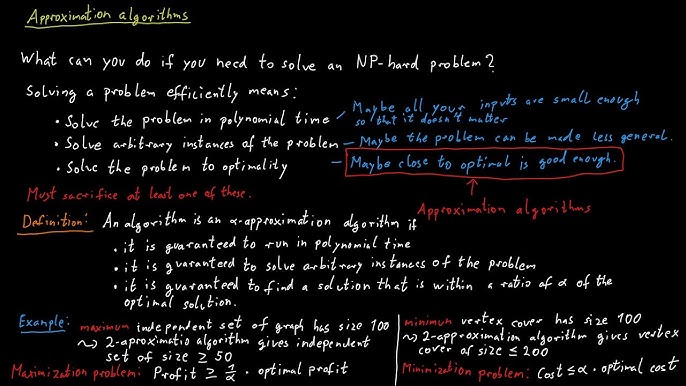 Approximation algorithms
What can you do if you need to solve an NP-hard problem?
Solving a problem efficiently means:
• Solve the problem in polynomial time
Maybe all your inputs are small enough
so that it doesn't matter
• Solve arbitrary instances of the problem
Maybe the problem can be made less general.
• Solve the problem to optimality
Maybe close to optimal is good enough.
Must sacrifice at least one of these.
Approximation algorithms
Definition: An algorithm is an α-approximation algorithm if
• it is guaranteed to run in polynomial time
• it is guaranteed to solve arbitrary instances of the problem
• it is guaranteed to find a solution that is within a ratio of α of the
optimal solution.
Example: maximum independent set of graph has size 100
↝ 2-aproximatio algorithm gives independent
set of size ≥ 50
Maximization problem: Profit ≥ 1/α · optimal profit
minimum vertex cover has size 100
↝ 2-approximation algorithm gives vertex
cover of size ≤ 200
Minimization problem: Cost ≤ α · optimal cost